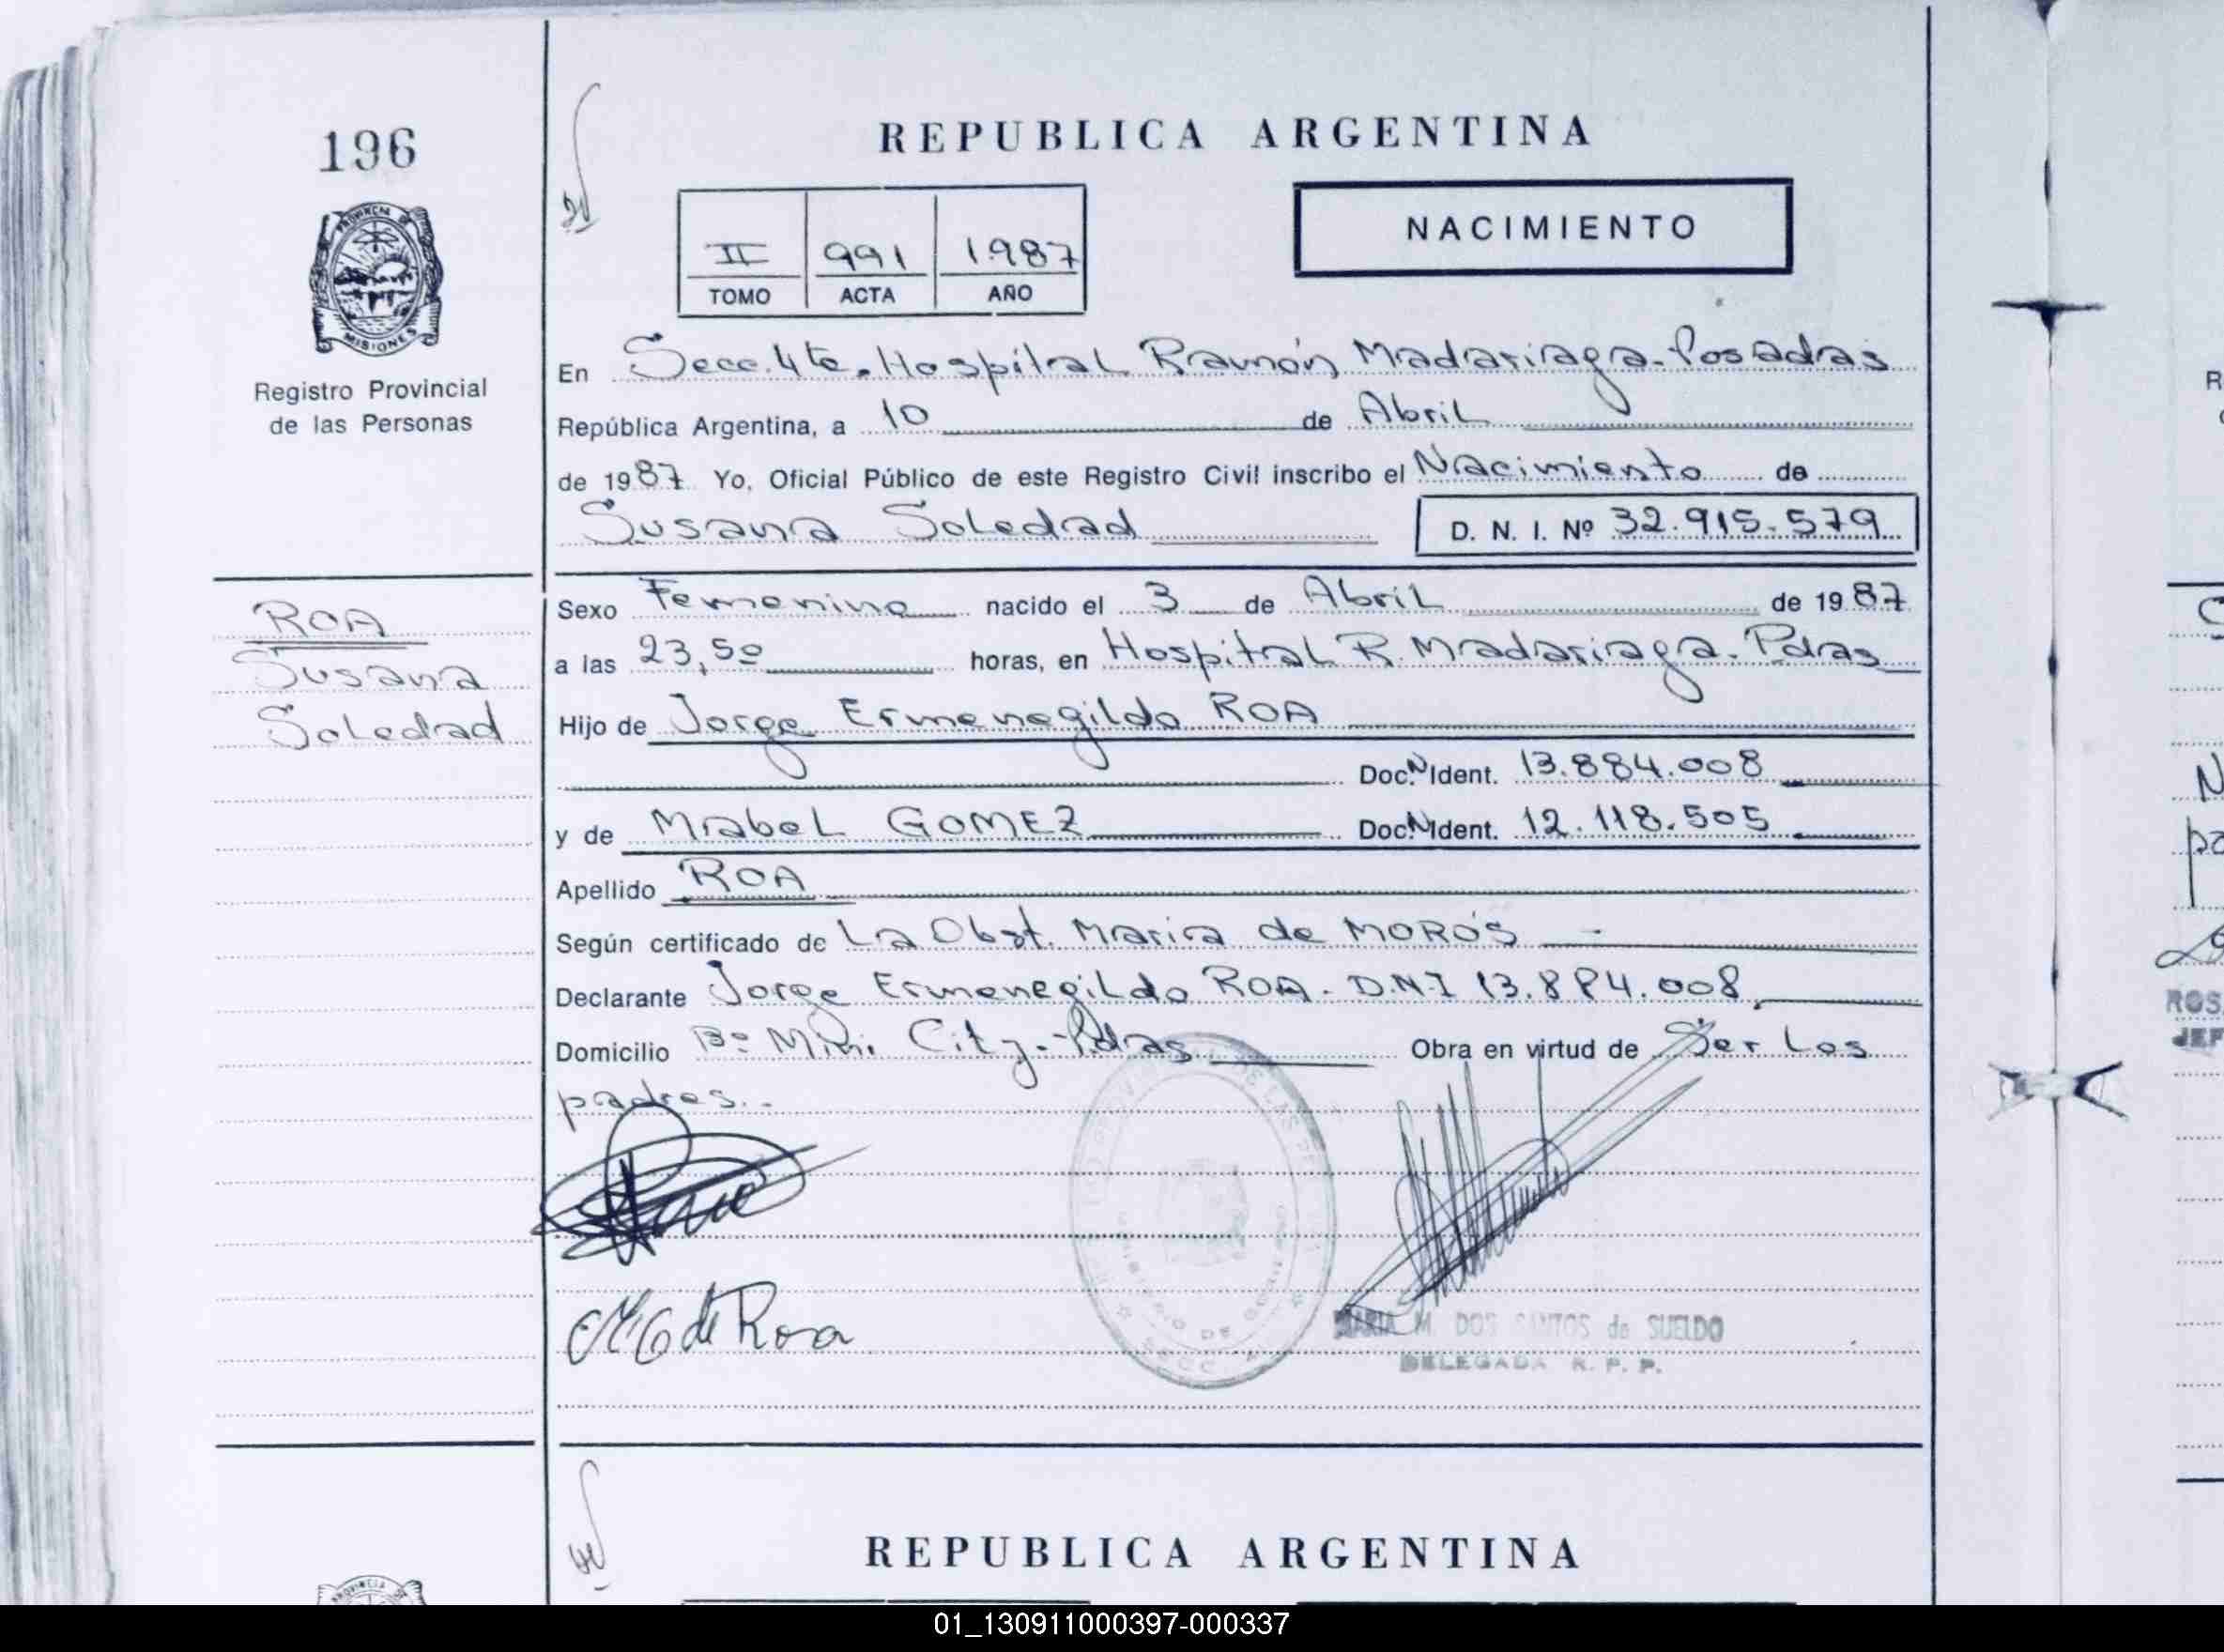 196
PROVINCIA DE
MISIONES
Registro Provincial
de las Personas
ROA
Susana
Soledad
REPUBLICA ARGENTINA
II 991 1987
TOMO ACTA AÑO
NACIMIENTO
En Secc. 4ta. Hospital Ramón Madariaga - Posadas
República Argentina, a 10 de Abril
de 1987 Yo, Oficial Público de este Registro Civil inscribo el Nacimiento de
Susana Soledad D. N. I. Nº 32.915.579
Sexo Femenino nacido el 3 de Abril de 1987
a las 23,50 horas, en Hospital R. Madariaga - Pdas
Hijo de Jorge Ermenegildo ROA
Doc. N Ident. 13.884.008
y de Mabel GOMEZ Doc. N Ident. 12.118.505
Apellido ROA
Según certificado de La Obst. Maria de MORÓS
Declarante Jorge Ermenegildo ROA - D.N.I 13.884.008
Domicilio Bº Mini City - Pdas Obra en virtud de Ser Los
padres.-
MARIA M. DOS SANTOS de SUELDO
DELEGADA R. P. P.
REPUBLICA ARGENTINA
ROS
JEF
01_130911000397-000337